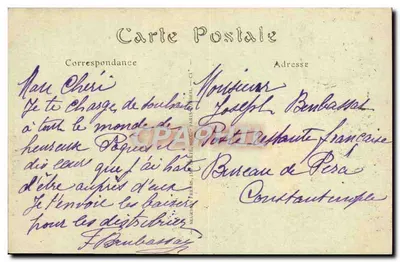 Carte Postale
Correspondance
Adresse
Mon Chéri
Je te charge de souhaiter
à tout le monde de
heureux Pâques
dis leur que j'ai hâte
d'être auprès d'eux
Je t'envoie les baisers
pour les distribuer
J Benbassat
Monsieur
Joseph Benbassat
Poste restante française
Bureau de Péra
Constantinople